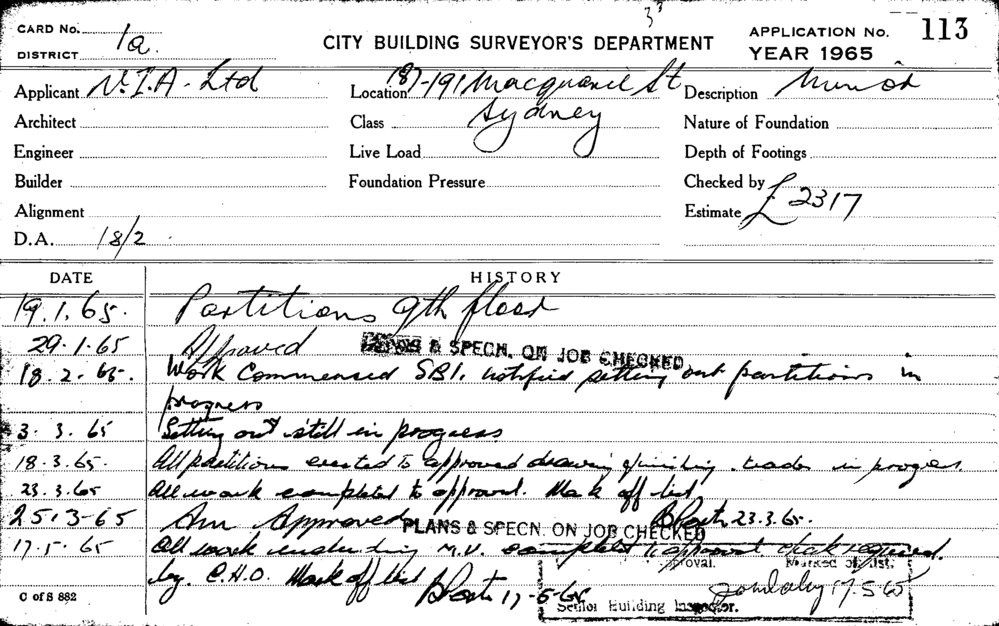 3
CARD No. 1a
DISTRICT
CITY BUILDING SURVEYOR'S DEPARTMENT
APPLICATION No. 113
YEAR 1965
Applicant N.I.A. Ltd
Location 187-191 Macquarie St
Description Minor
Architect
Class Sydney
Nature of Foundation
Engineer
Live Load
Depth of Footings
Builder
Foundation Pressure
Checked by
Alignment
Estimate £2317
D.A. 18/2
DATE HISTORY
19.1.65. Partitions 9th floor
29.1.65 Approved & SPECN. ON JOB CHECKED
18.2.65. Work Commenced SBI. notified setting out partitions in
progress
3.3.65 Setting out still in progress
18.3.65. All partitions erected to approved drawing finishing trades in progress
23.3.65 All work completed to approval. Mark off list
25.3-65 Am Approved PLANS & SPECN. ON JOB CHECKED 23.3.65.
17.5.65 All work including M.V. completed to approval
by C.H.O. Mark off list 17-5-65
approval. Marked off list.
17.5.65
Senior Building Inspector.
C of S 882